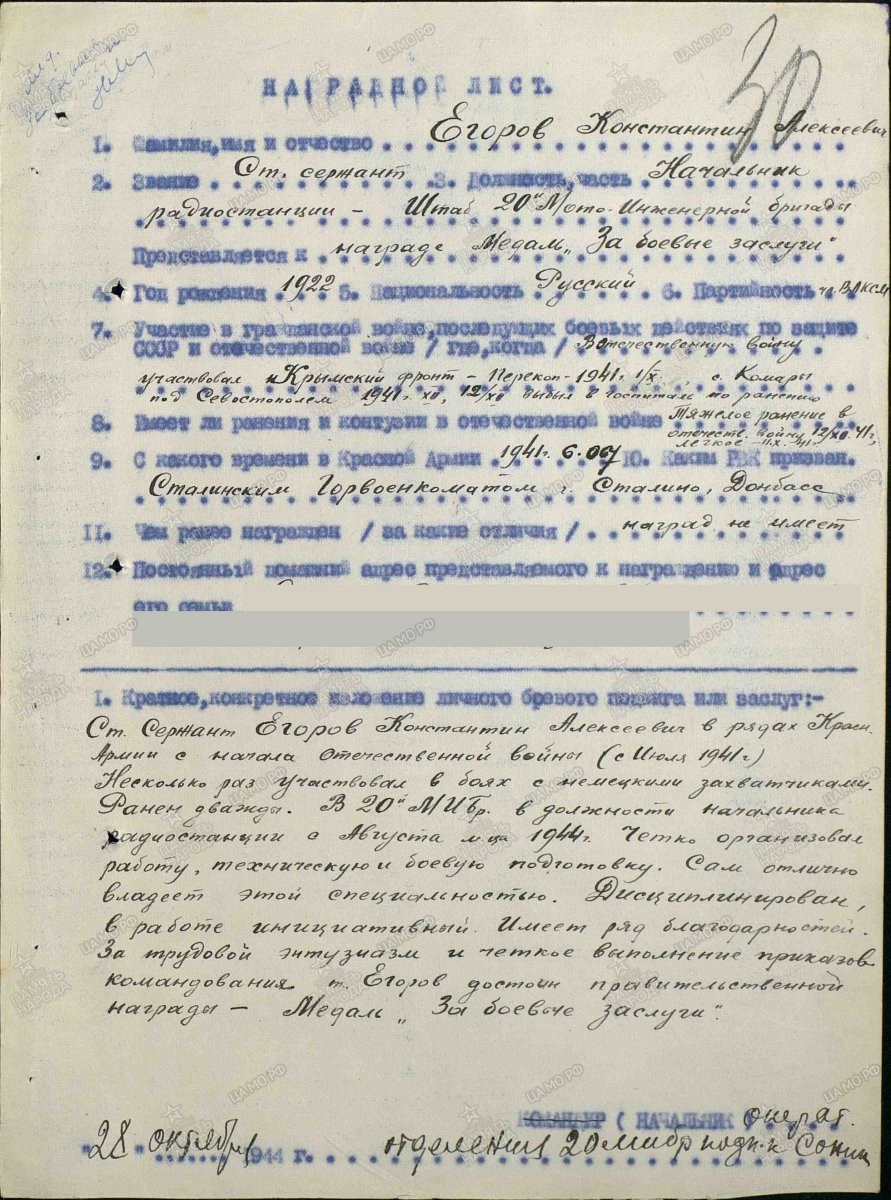 30
НАГРАДНОЙ ЛИСТ.
1. Фамилия, имя и отчество Егоров Константин Алексеевич
2. Звание Ст. сержант 3. Должность, часть Начальник
радиостанции – Штаб 20й Мото-Инженерной бригады
Представляется к награде Медаль „За боевые заслуги"
4. Год рождения 1922 5. Национальность Русский 6. Партийность чл. ВЛКСМ
7. Участие в гражданской войне, последующих боевых действиях по защите
СССР и отечественной войне / где, когда / В отечественную войну
участвовал Крымский фронт – Перекоп – 1941 г. 1/X., с. Комары
под Севостополем 1941 г. XII, 12/XII выбыл в госпиталь по ранению
8. Имеет ли ранения и контузии в отечественной войне Тяжелое ранение в
отечеств. войну 12/XII 41 г.,
легкое
9. С какого времени в Красной Армии 1941 г. 6.07 10. Каким РВК призван.
Сталинским Горвоенкоматом г. Сталино, Донбасс
11. Чем ранее награжден / за какие отличия / наград не имеет
12. Постоянный домашний адрес представляемого к награждению и адрес
его семьи
1. Краткое, конкретное изложение личного боевого подвига или заслуг:-
Ст. Сержант Егоров Константин Алексеевич в рядах Красн.
Армии с начала Отечественной войны (с Июля 1941 г.)
Несколько раз участвовал в боях с немецкими захватчиками.
Ранен дважды. В 20й МИБр. в должности начальника
радиостанции с Августа м-ца 1944 г. Четко организовал
работу, техническую и боевую подготовку. Сам отлично
владеет этой специальностью. Дисциплинирован,
в работе инициативный. Имеет ряд благодарностей.
За трудовой энтузиазм и четкое выполнение приказов
командования т. Егоров достоин правительственной
награды – Медаль „За боевые заслуги".
КОМАНДИР ( НАЧАЛЬНИК ) операт.
"28" октября 1944 г. отделения 20 мибр подп-к